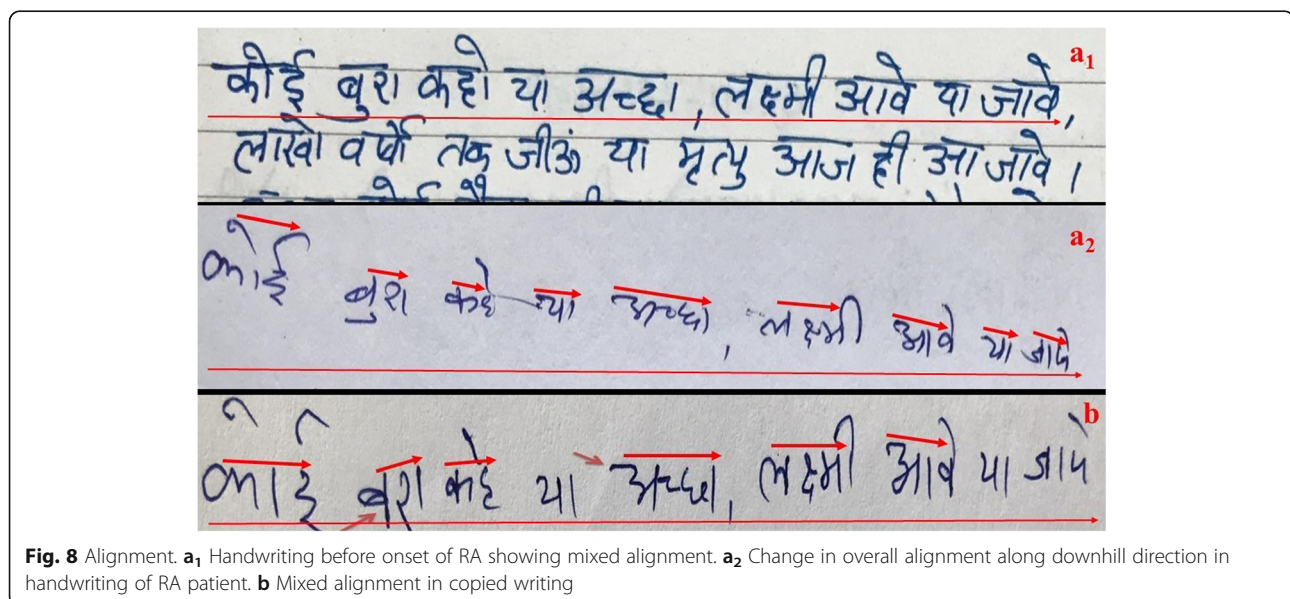 a₁
कोई बुरा कहो या अच्छा, लक्ष्मी आवे या जावे,
लाखो वर्षो तक जीऊं या मृत्यु आज ही आ जावे ।
a₂
कोई बुरा कहे या अच्छा, लक्ष्मी आवे या जावे
b
कोई बुरा कहे या अच्छा, लक्ष्मी आवे या जावे
Fig. 8 Alignment. a₁ Handwriting before onset of RA showing mixed alignment. a₂ Change in overall alignment along downhill direction in
handwriting of RA patient. b Mixed alignment in copied writing